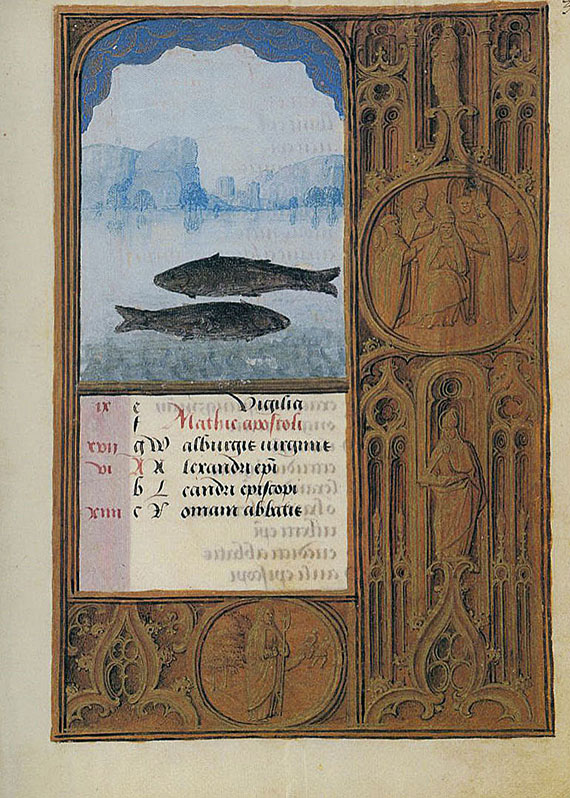 ix e Vigilia
f Mathie apostoli
xvii g Walburgie uirginis
vi A Alexandri epi
b Leandri episcopi
xiiii c Romani abbatis